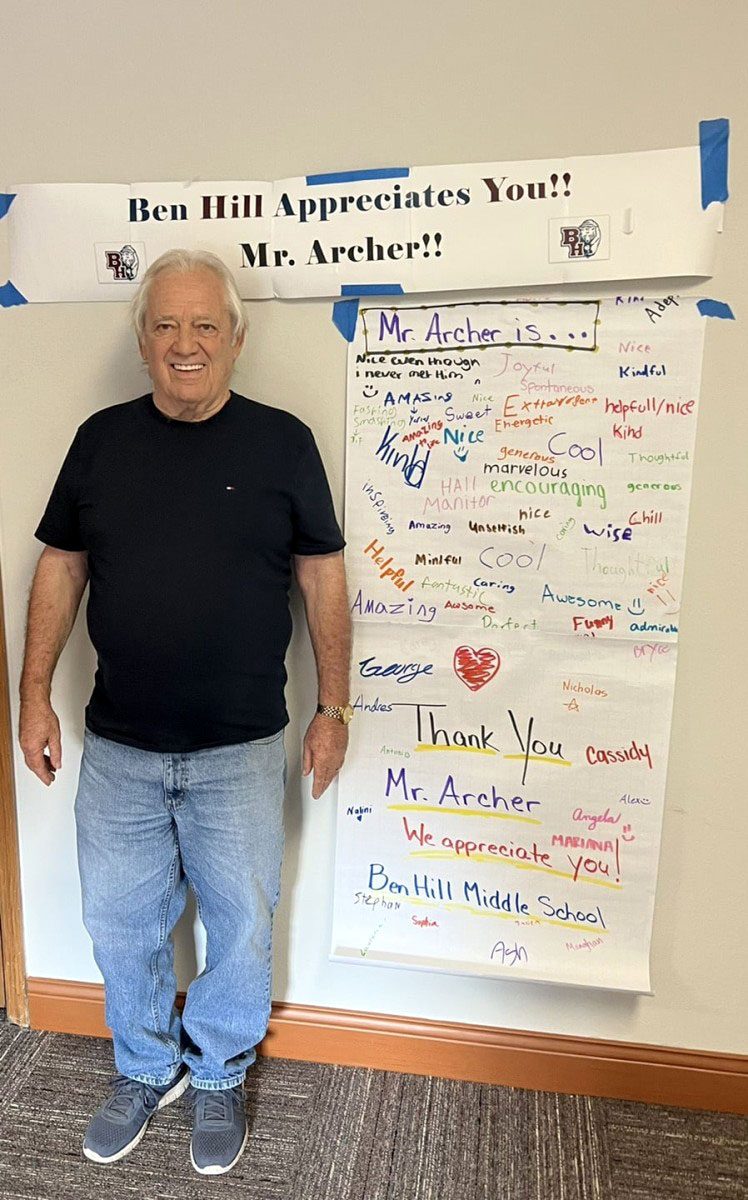 Ben Hill Appreciates You!!
Mr. Archer!!
BH
BH
Mr. Archer is...
Kind
Nice even though
i never met Him
Joyful
Nice
Kindful
Spontaneous
AMAZING
Nice
Sweet
Extravagent
helpfull/nice
Energetic
Kind
Amazing
Nice
Kind
generous
Cool
Thoughtful
marvelous
inspiring
HAll
Manitor
encouraging
generous
nice
Chill
Amazing
Unselfish
caring
wise
Helpful
Minlful
Cool
Thoughtful
fantastic
caring
nice!!
Amazing
Awesome
Awesome
Funny
Bryce
George
Nicholas
Andres
Thank You
Antonio
Cassidy
Mr. Archer
Alex
Nalini
Angela
We appreciate you!
MARIANA
Ben Hill Middle School
Stephan
Sophia
Ash